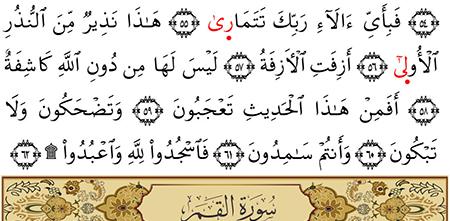 ﴿٥٤﴾ فَبِأَىِّ ءَالَآءِ رَبِّكَ تَتَمَارَىٰ ﴿٥٥﴾ هَـٰذَا نَذِيرٌ مِّنَ ٱلنُّذُرِ
ٱلْأُولَىٰٓ ﴿٥٦﴾ أَزِفَتِ ٱلْـَٔازِفَةُ ﴿٥٧﴾ لَيْسَ لَهَا مِن دُونِ ٱللَّهِ كَاشِفَةٌ
﴿٥٨﴾ أَفَمِنْ هَـٰذَا ٱلْحَدِيثِ تَعْجَبُونَ ﴿٥٩﴾ وَتَضْحَكُونَ وَلَا
تَبْكُونَ ﴿٦٠﴾ وَأَنتُمْ سَـٰمِدُونَ ﴿٦١﴾ فَٱسْجُدُوا۟ لِلَّهِ وَٱعْبُدُوا۟ ۩ ﴿٦٢﴾
سُورَة القَمَر